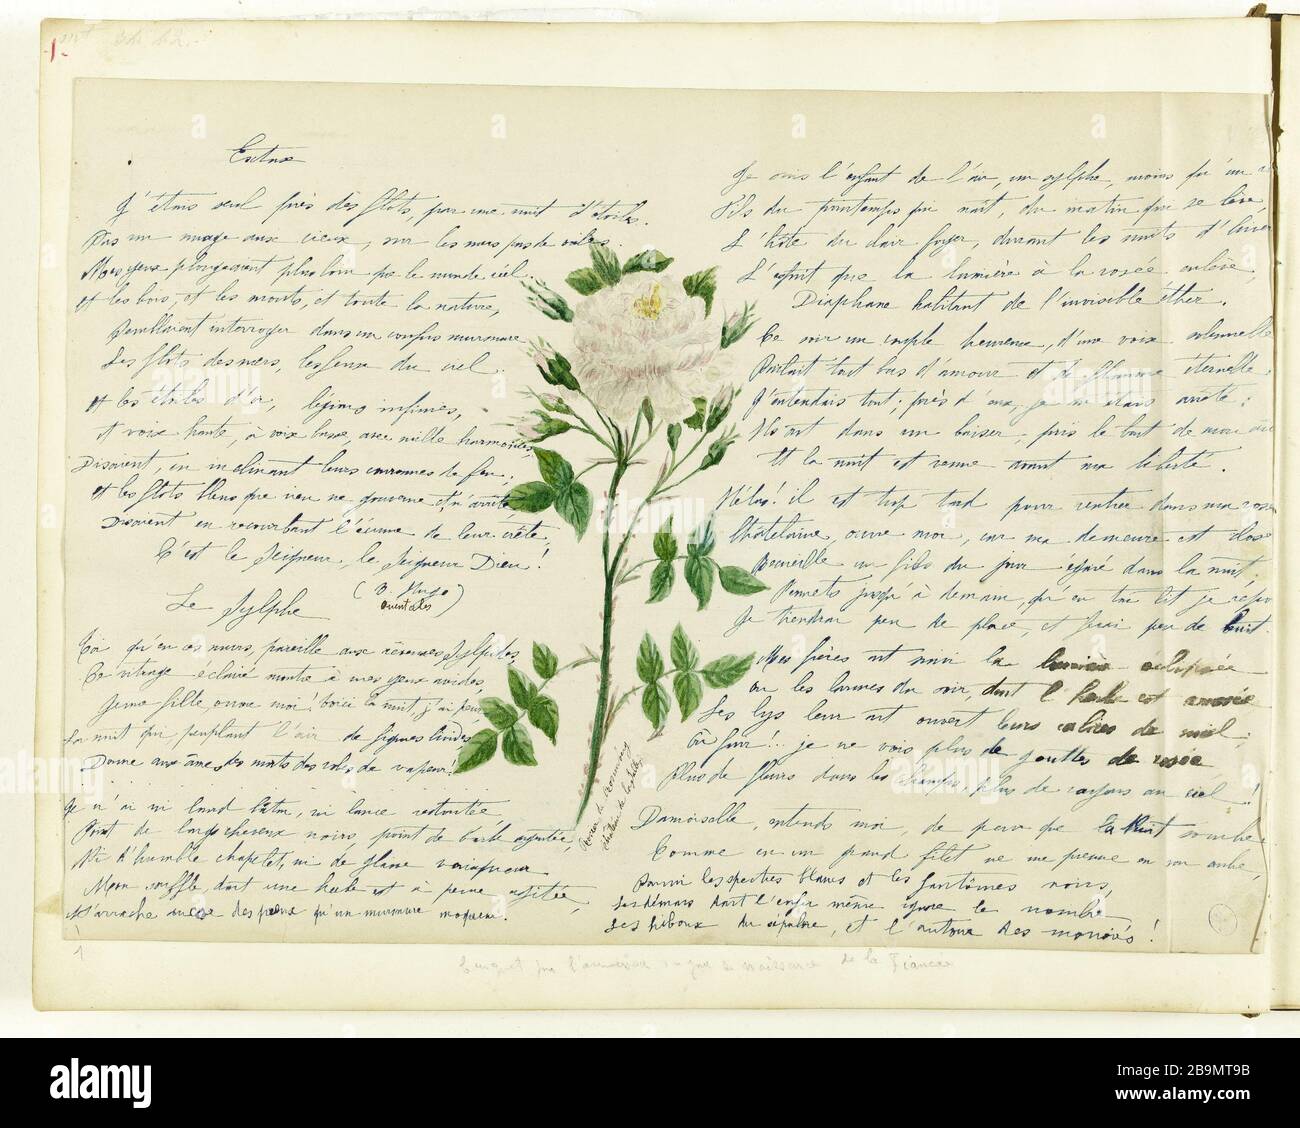 -1-
Extase
J'étais seul près des flots, par une nuit d'étoiles.
Pas un nuage aux cieux, sur les mers pas de voiles.
Mes yeux plongeaient plus loin que le monde réel.
et les bois, et les monts, et toute la nature,
Semblaient interroger dans un confus murmure
Les flots des mers, les feux du ciel.
et les étoiles d'or, légions infinies,
et voix haute, à voix basse, avec mille harmonies,
Disaient, en inclinant leurs couronnes de feu,
et les flots bleus que rien ne gouverne et n'arrête
Disaient en recourbant l'écume de leur crête,
C'est le Seigneur, le Seigneur Dieu!
(V. Hugo)
orientales
Le Sylphe
Toi qu'en ces murs, pareille aux rêveuses Sylphides,
Ce vitrage éclairé montre à mes yeux avides,
Jeune fille, ouvre moi! Voici la nuit, j'ai peur
La nuit qui peuplant l'air de figures livides
Donne aux âmes des morts des robes de vapeur!
Je n'ai ni lourd bâton, ni lance redoutée,
Point de longs cheveux noirs, point de barbe argentée,
Ni d'humble chapelet, ni de glaive vainqueur
Mon souffle, dont une herbe est à peine agitée,
N'arrache aux cor des preux qu'un murmure moqueur.
Je suis l'enfant de l'air, un sylphe, moins qu'un
Fils du printemps qui naît, du matin qui se lève,
L'hôte du clair foyer, durant les nuits d'hiver
L'esprit que la lumière à la rosée enlève,
Diaphane habitant de l'invisible éther.
Ce soir un couple heureux, d'une voix solennelle
Parlait tout bas d'amour et de flamme éternelle.
J'entendais tout; près d'eux, je m'étais arrêté;
Ils ont dans un baiser, pris le bout de mon
Et la nuit est venue avant ma liberté.
Hélas! il est trop tard pour rentrer dans ma rose
Châtelaine, ouvre moi, car ma demeure est close
Recueille un fils du jour égaré dans la nuit;
Permets jusqu'à demain, qu'en ton lit je repo
Je tiendrai peu de place, et ferai peu de bruit.
Mes frères ont suivi la lumière éclipsée
ou les larmes du soir, dont l'herbe est arrosée
Les lys leur ont ouvert leurs calices de miel;
Où fuir!.. je ne vois plus de gouttes de rosée
Plus de fleurs dans les champs, plus de rayons au ciel!
Damoiselle, entends moi, de peur que la Nuit sombre,
Comme en un grand filet ne me prenne en son ombre,
Parmi les spectres blancs et les fantômes noirs,
Les démons dont l'enfer même ignore le nombre
Les hiboux du sépulcre, et l'autour des manoirs!
jour de naissance de la Fiancée
1
alamy
Image ID: 2B9MT9B
www.alamy.com